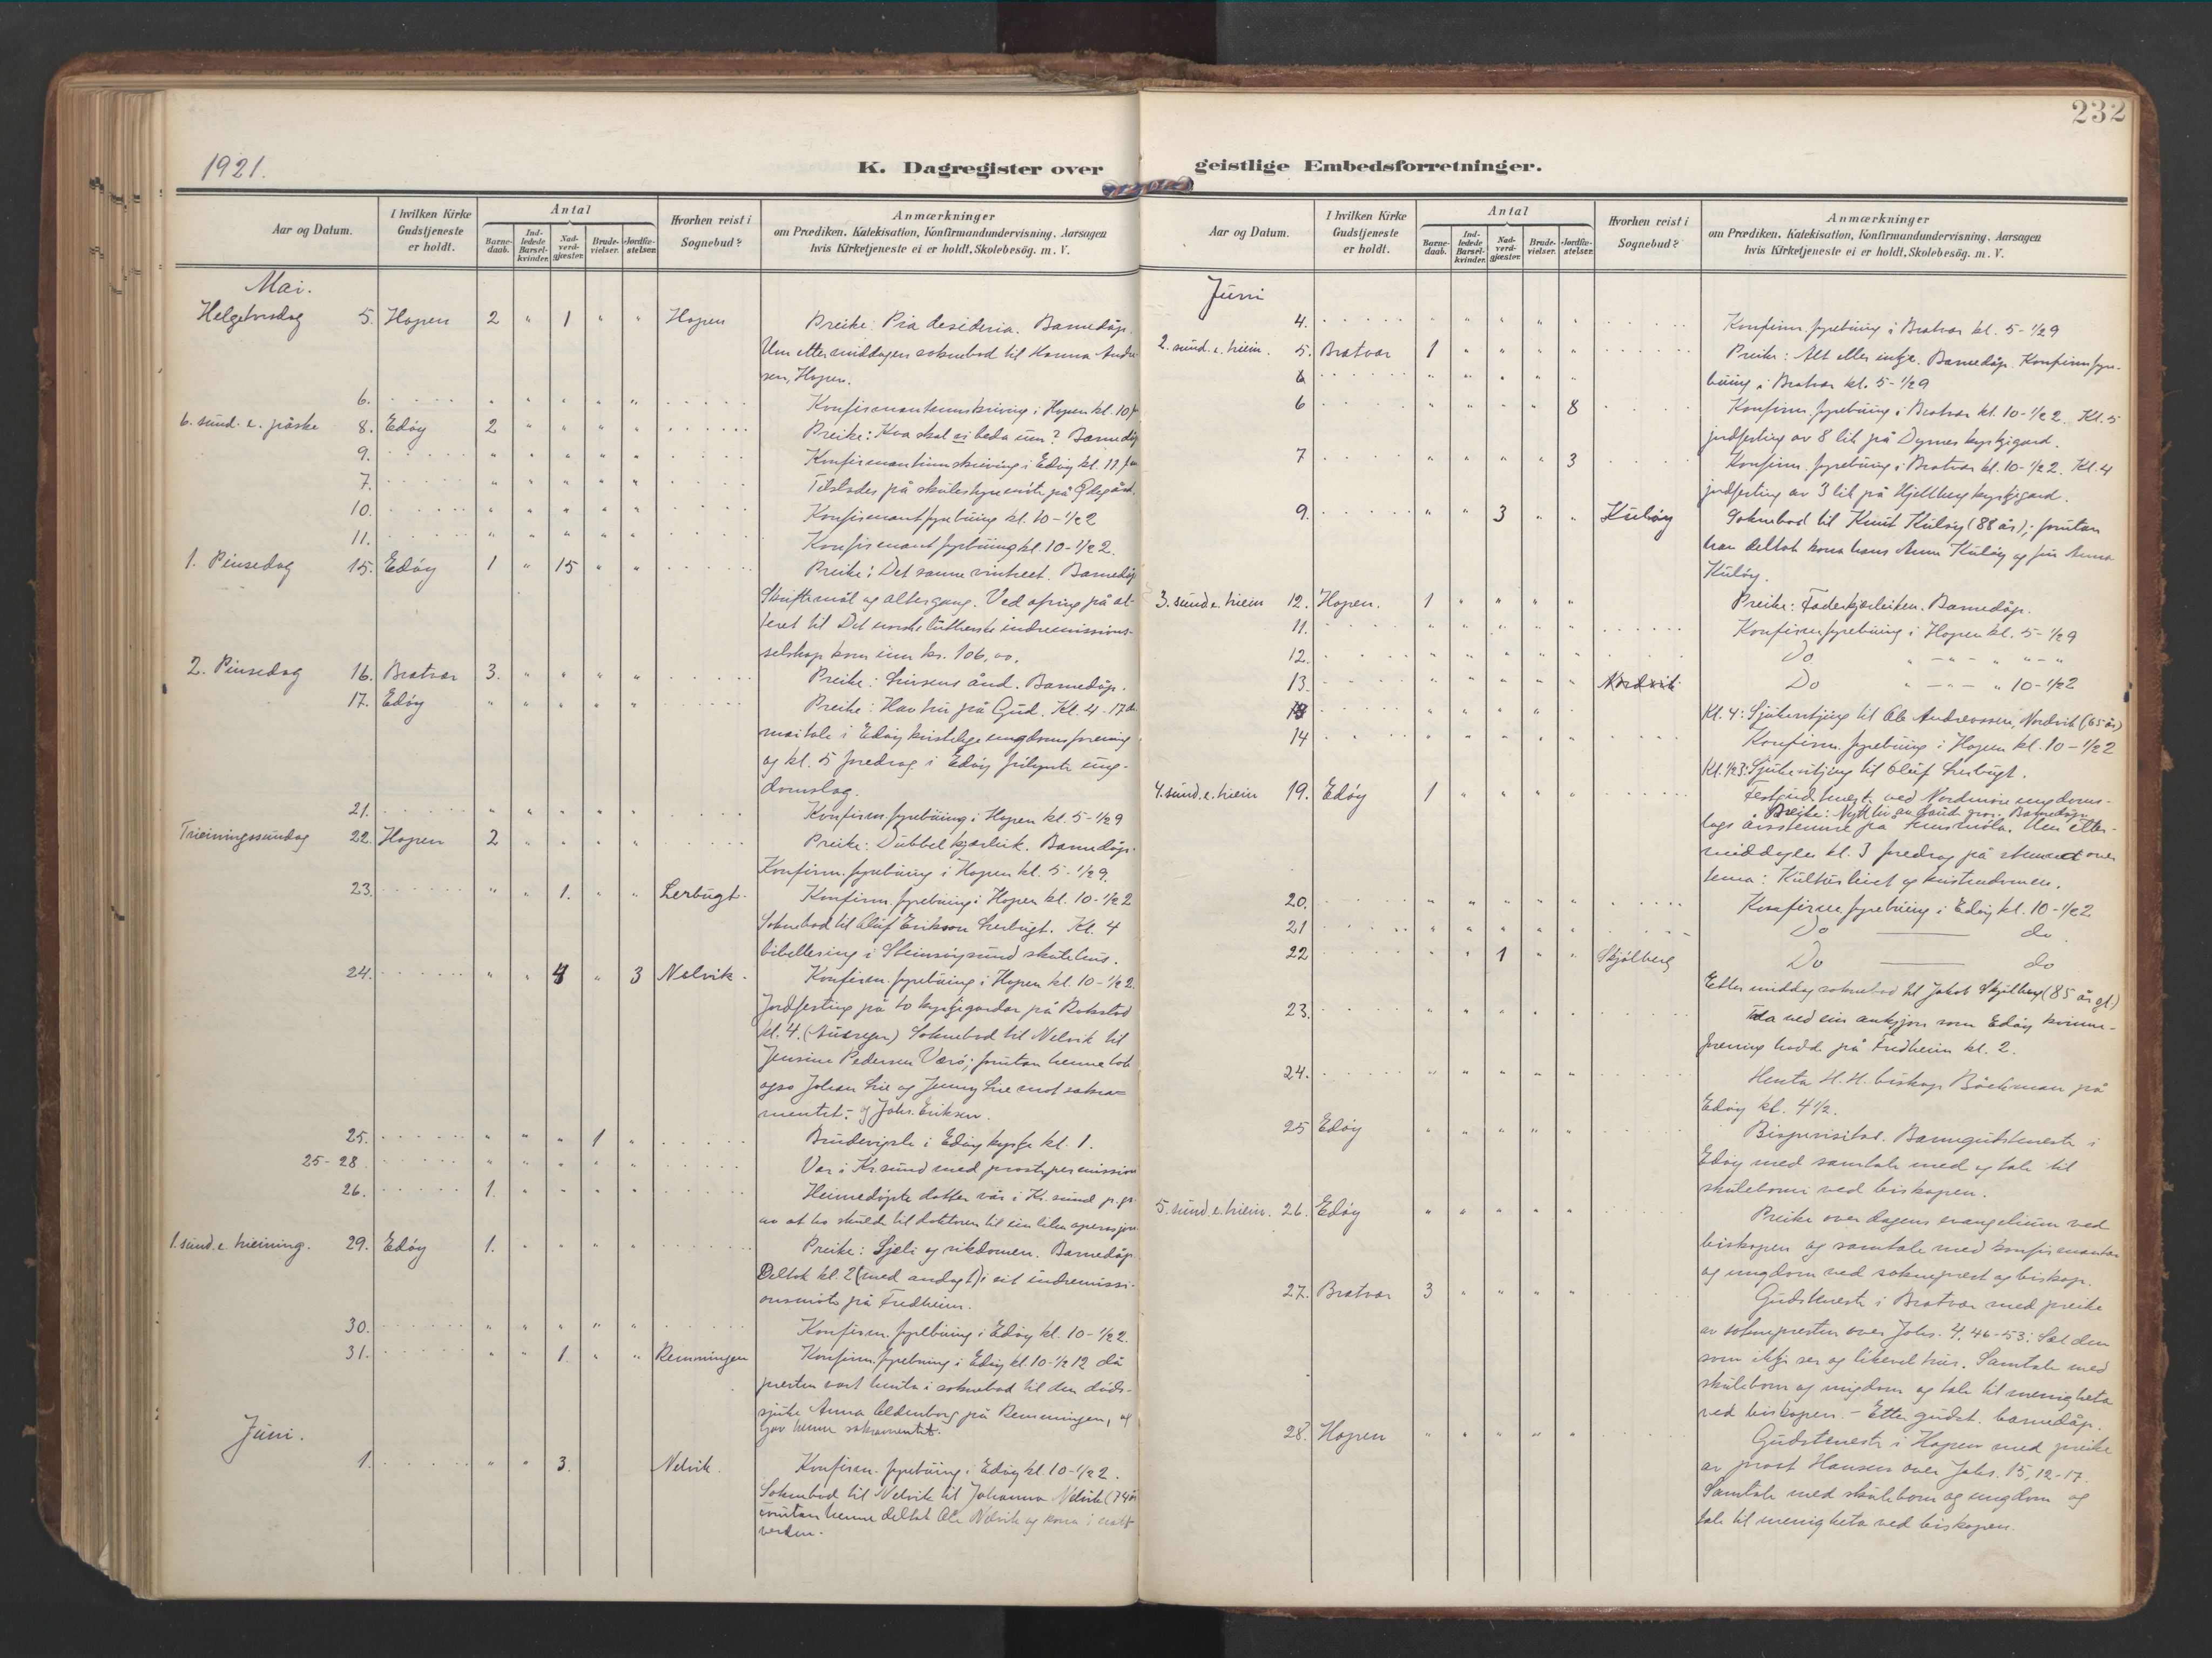 232
1921.
K. Dagregister over geistlige Embedsforretninger.
Aar og Datum. I hvilken Kirke Gudstjeneste er holdt. Antal Barne-daab. Ind-ledede Barsel-kvinder. Nad-verd-gjæster. Brude-vielser. Jordfæ-stelser. Hvorhen reist i Sognebud? Anmærkninger om Prædiken, Katekisation, Konfirmandundervisning, Aarsagen hvis Kirketjeneste ei er holdt, Skolebesög. m. V.
Mai.
Helgetorsdag 5. Hopen 2 " 1 " " Hopen Preike: Pia desideria. Barnedåp.
Um ettermiddagen soknebod til Hanna Andre-
sen, Hopen.
6. " " " " " Konfirmantinnskriving i Hopen kl. 10 f.
6. sund. e. påske 8. Edöy 2 " " " " Preike: Kva skal vi beda um? Barnedåp
9. " " " " " Konfirmantinnskriving i Edöy kl. 11 fm
7. " " " " " Tilstades på skulestyremöte på Ödegård.
10. " " " " " Konfirmantfyrebuing kl. 10-1/2 2
11. " " " " " Konfirmantfyrebuing kl. 10-1/2 2.
1. Pinsedag 15. Edöy 1 " 15 " " Preike: Det sanne vintreet. Barnedåp
Skriftemål og altergang. Ved ofring på al-
teret til Det norske lutherske indremissions-
selskap kom inn kr. 106,00.
2. Pinsedag 16. Bratvær 3. " " " " Preike: Livsens ånd. Barnedåp.
17. Edöy " " " " " Preike: Hav tru på Gud. Kl. 4 17de
maitale i Edöy kristelige ungdomsforening
og kl. 5 foredrag i Edöy frilynte ung-
domslag.
21. " " " " " Konfirm.fyrebuing i Hopen kl. 5-1/2 9
Treiningssundag 22. Hopen 2 " " " " Preike: Dubbel kjærleik. Barnedåp.
Konfirm. fyrebuing i Hopen kl. 5-1/2 9.
23. " " 1. " " Lerbugt. Konfirm. fyrebuing i Hopen kl. 10-1/2 2
Soknebod til Oluf Erikson Lerbugt. Kl. 4
bibellesing i Steinsöysund skulehus.
24. " " 4 " 3 Nelvik. Konfirm. fyrebuing i Hopen kl. 10-1/2 2.
Jordfesting på to kyrkjegardar på Rokstad
kl. 4. Soknebod til Nelvik til
Jensine Pedersen Værö; foruten henne tok
ogso Johan Lie og Jenny Lie mot sakra-
mentet. og Johs. Eriksen.
25. " " " 1 " Brudevigsle i Edöy kyrkje kl. 1.
25-28. " " " " " Var i Kr.sund med prostepermission
26. 1. " " " " Heimedöypte dotter vår i Kr.sund p.gr.
av at ho skulde til doktoren til ein liten operasjon.
1. sund. e. treining. 29. Edöy 1. " " " " Preike: Sjeli og rikdomen. Barnedåp
Deltok kl. 2 (med andagt) i eit indremissi-
onsmöte på Fredheim.
30. " " " " " Konfirm. fyrebuing i Edöy kl. 10-1/2 2.
31. " " 1. " " Remmingen Konfirm. fyrebuing i Edöy kl. 10-1/2 12 då
presten vart henta i soknebod til den döds-
sjuke Anna på Remmingen, og
gav henne sakramentet.
Juni.
1. " " 3. Nelvik. Konfirm. fyrebuing i Edöy kl. 10-1/2 2.
Soknebod til Nelvik til Johanna Nelvik (74 år
foruten henne deltok Ole Nelvik og kona i natt-
verden.
Aar og Datum. I hvilken Kirke Gudstjeneste er holdt. Antal Barne-daab. Ind-ledede Barsel-kvinder. Nad-verd-gjæster. Brude-vielser. Jordfæ-stelser. Hvorhen reist i Sognebud? Anmærkninger om Prædiken, Katekisation, Konfirmandundervisning, Aarsagen hvis Kirketjeneste ei er holdt, Skolebesög. m. V.
Juni
4. " " " " Konfirm. fyrebuing i Bratvær kl. 5-1/2 9
2. sund. e. trein. 5. Bratvær 1 " " " " Preike: Alt eller intje. Barnedåp. Konfirm.fyre-
6 " " " " buing i Bratvær kl. 5-1/2 9
6 " " " " 8 Konfirm. fyrebuing i Bratvær kl. 10-1/2 2. Kl. 5
jordfesting av 8 lik på Dyrnes kyrkjegard.
7 " " " " 3 Konfirm. fyrebuing i Bratvær kl. 10-1/2 2. Kl. 4
jordfesting av 3 lik på Hjellberg kyrkjegard.
9. " " 3 " " Kulöy Soknebod til Knut Kulöy (88 år); foruten
han deltok kona hans Anne Kulöy og fru Anna
Kulöy.
3. sund e. trein 12. Hopen. 1 " " " " Preike: Faderkjærleiken. Barnedåp.
11. " " " " " Konfirm.fyrebuing i Hopen kl. 5-1/2 9
12. " " " " " Do " - " - " " - "
13. " " " " " Nordvik Do " - " - " 10-1/2 2
13 " " " " Kl. 4: Sjukevitjing til Ole Andreassen, Nordvik (65 år)
14 " " " " " Konfirm. fyrebuing i Hopen kl. 10-1/2 2
Kl. 1/2 3: Sjukevitjing til Oluf Lerbugt.
4. sund. e. trein 19. Edöy 1 " " " " Festgudstenest ved Nordmöre ungdoms-
Preike: Nytt liv av daud gror. Barnedåp.
lags årsstemne på Smöla. Um etter-
middagen kl. 3 foredrag på stemnet over
tema: Kulturlivet og kristendomen.
20. " " " " " Konfirm. fyrebuing i Edöy kl. 10-1/2 2
21 " " " " " Do do.
22 " " 1 " " Skjölberg Do do
Ettermiddag soknebod til Jakob Skjölberg (85 år gl.)
23. " " " " " Tala ved ein auksjon som Edöy kvinne-
forening hadde på Fredheim kl. 2.
24. " " " " " Henta H. H. biskop Böckman på
Edöy kl. 4 1/2.
25 Edöy " " " " " Bispevisitas. Barnegudstenest i
Edöy med samtale med og tale til
skuleborni ved biskopen.
5. sund. e. trein. 26. Edöy " " " " " Preike over dagens evangelium ved
biskopen og samtale med konfirmantar
og ungdom ved sokneprest og biskop.
27. Bratvær 3 " " " " Gudstenest i Bratvær med preike
av soknepresten over Johs. 4, 46-53: Sæl den
som ikkje ser og likevel trur. Samtale med
skuleborn og ungdom og tale til menigheta
ved biskopen. - Etter gudst. barnedåp.
28. Hopen " " " " " Gudstenest i Hopen med preike
av prost Hansen over Johs. 15, 12-17.
Samtale med skuleborn og ungdom og
tale til menigheta ved biskopen.